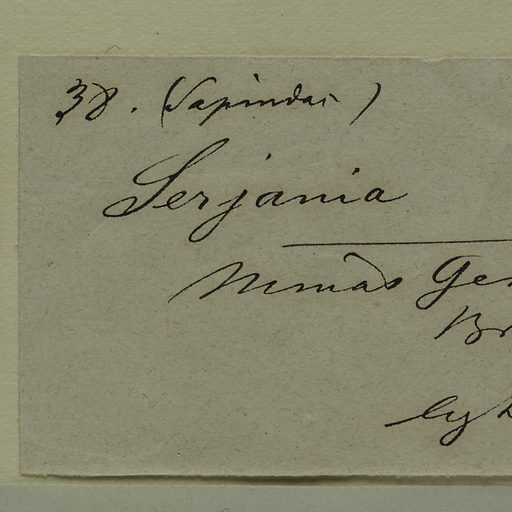 38. (Sapindac)
Serjania
Minas Ge
Br